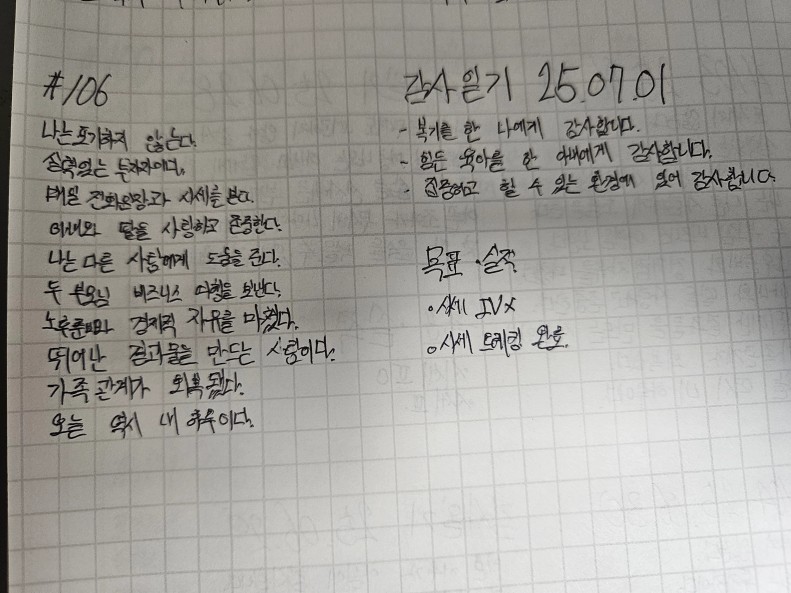 #106
나는 포기하지 않는다.
실력있는 투자자이다.
매일 전화임장과 시세를 본다.
아내와 딸을 사랑하고 존중한다.
나는 다른 사람에게 도움을 준다.
두 부모님 비즈니스 여행을 보낸다.
노후준비와 경제적 자유를 마쳤다.
뛰어난 결과물을 만드는 사람이다.
가족관계가 회복됐다.
오늘 역시 내 하루이다.
감사일기 25.07.01
- 복기를 한 나에게 감사합니다.
- 힘든 육아를 한 아내에게 감사합니다.
- 집중하고 할 수 있는 환경에 있어 감사합니다.
목표·실적
시세
시세 트레킹 완료.